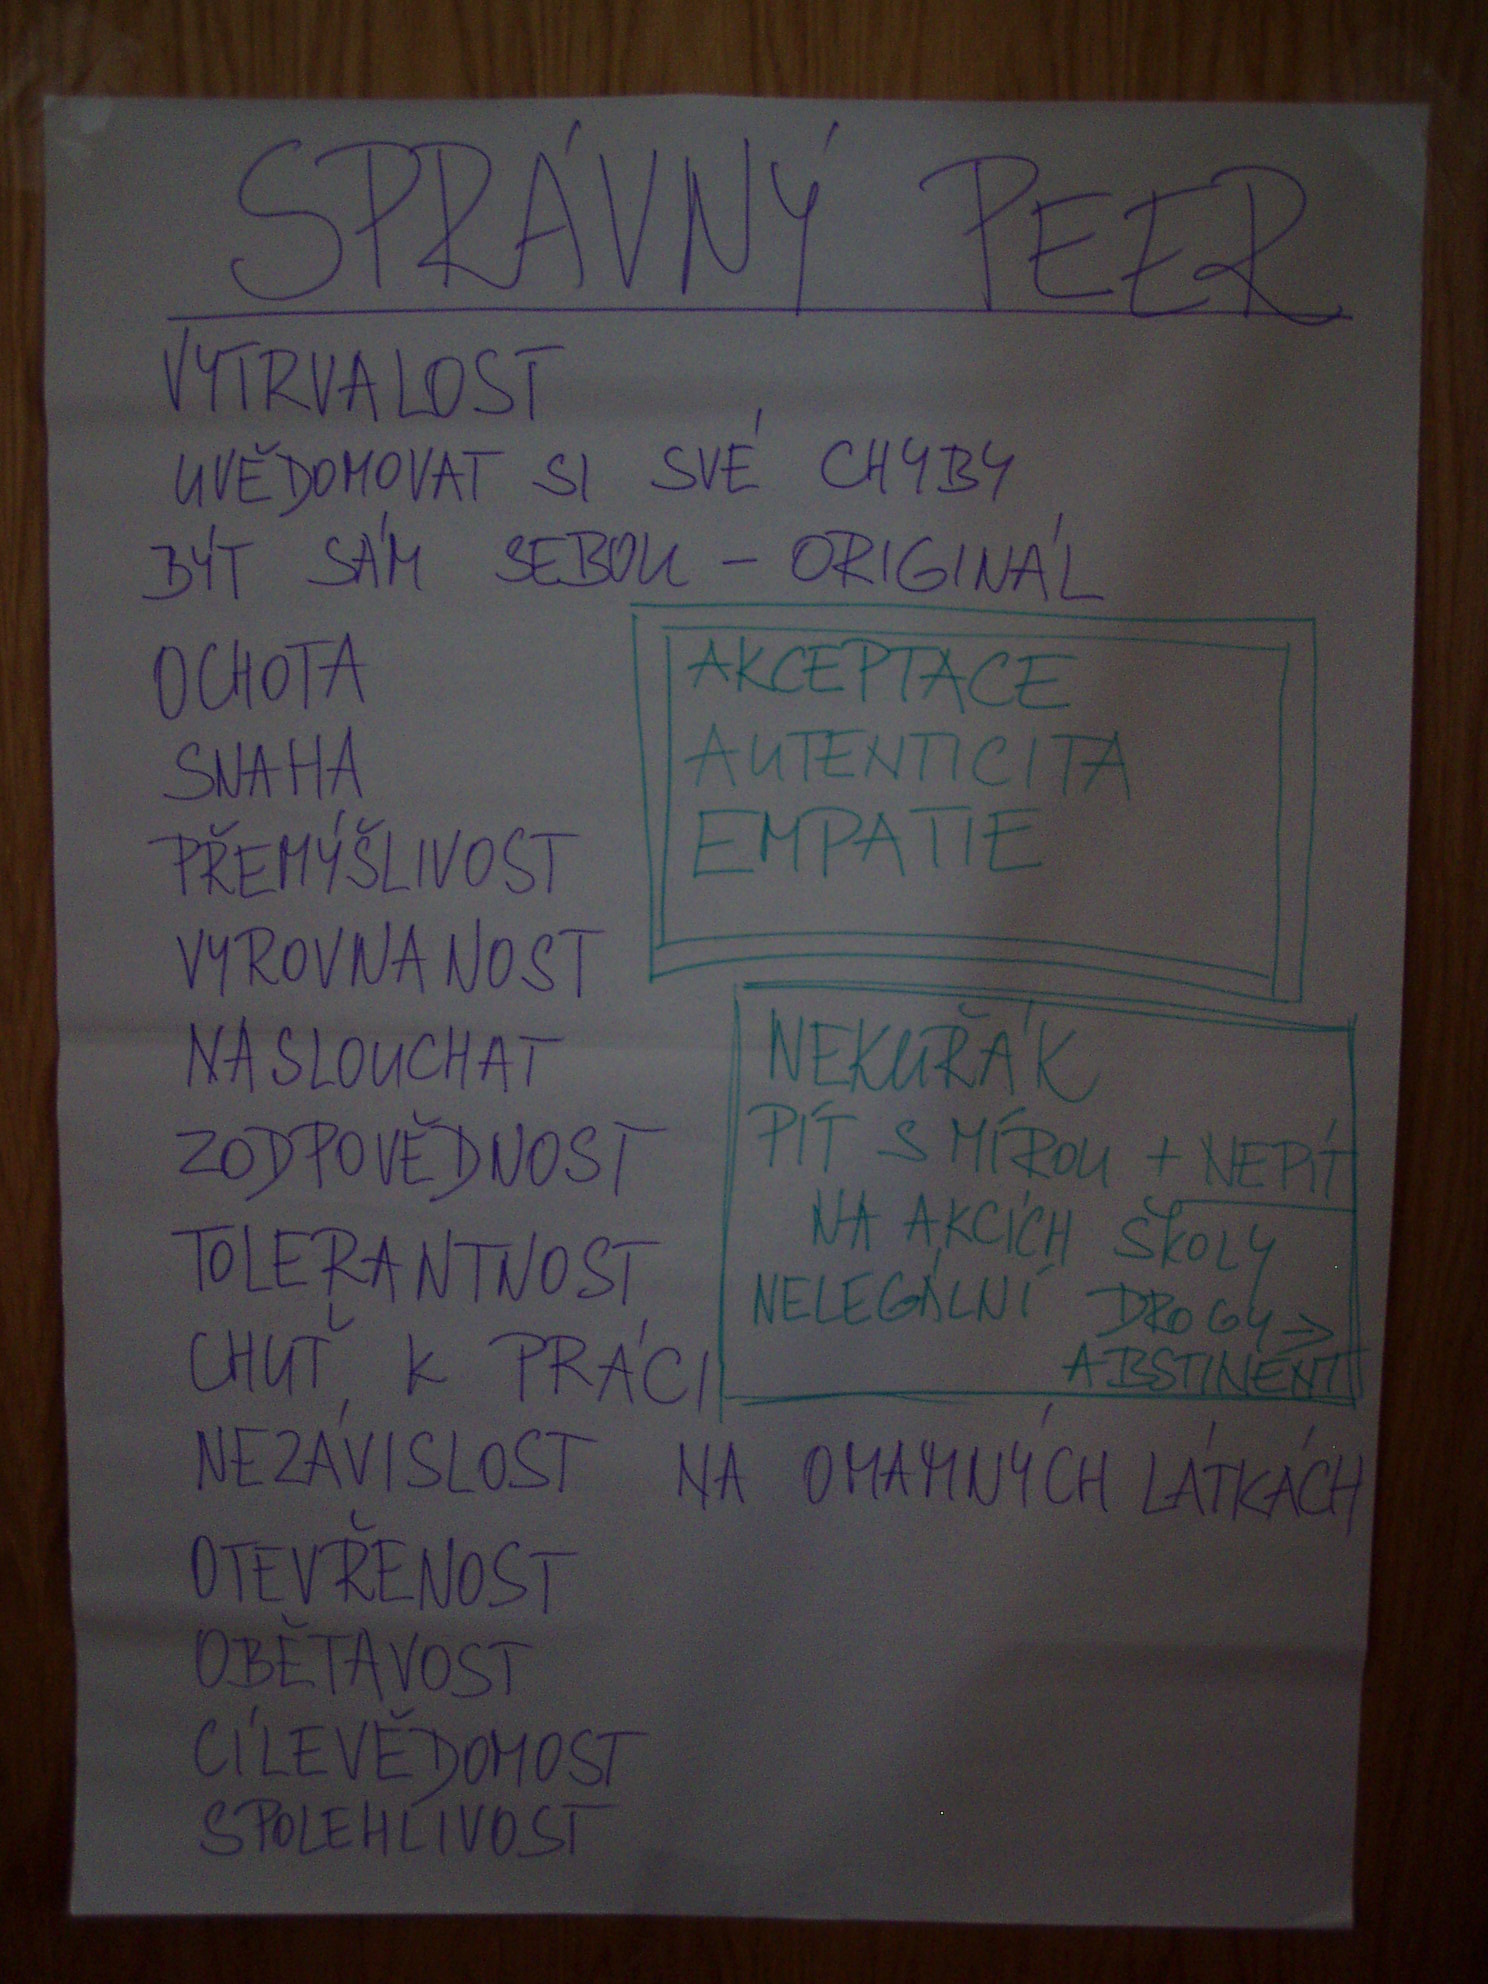 SPRÁVNÝ PEER
VYTRVALOST
UVĚDOMOVAT SI SVÉ CHYBY
BÝT SÁM SEBOU - ORIGINÁL
OCHOTA
SNAHA
PŘEMÝŠLIVOST
VYROVNANOST
NASLOUCHAT
ZODPOVĚDNOST
TOLERANTNOST
CHUŤ K PRÁCI
AKCEPTACE
AUTENTICITA
EMPATIE
NEKUŘÁK
PÍT S MÍROU + NEPÍT
NA AKCÍCH ŠKOLY
NELEGÁLNÍ DROGY →
ABSTINENT
NEZÁVISLOST NA OMAMNÝCH LÁTKÁCH
OTEVŘENOST
OBĚTAVOST
CÍLEVĚDOMOST
SPOLEHLIVOST